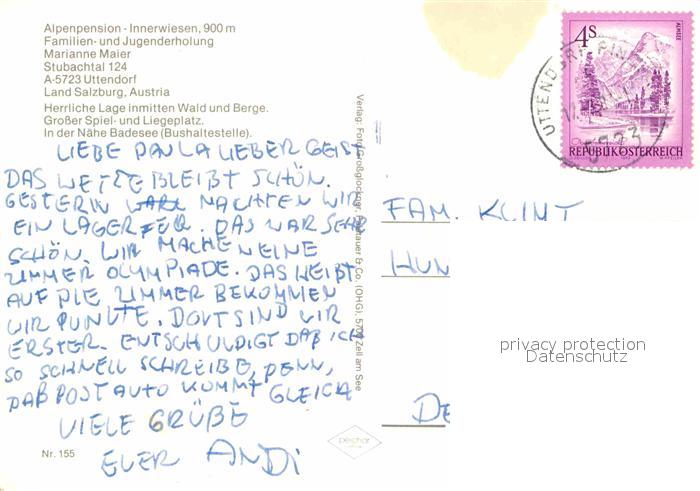 Alpenpension - Innerwiesen, 900 m
Familien- und Jugenderholung
Marianne Maier
Stubachtal 124
A-5723 Uttendorf
Land Salzburg, Austria
Herrliche Lage inmitten Wald und Berge.
Großer Spiel- und Liegeplatz.
In der Nähe Badesee (Bushaltestelle).
LIEBE PAULA LIEBER GEIST
DAS WETTE BLEIBT SCHÖN.
GESTERIN WAR NACHTEN WIR
EIN LAGERFER. DAS WAR SEHR
SCHÖN. WIR MACHEN EINE
ZIMMER OLYMPIADE. DAS HEIßT
AUF DIE ZIMMER BEKOMMEN
WIR PUNKTE. DORT SIND WIR
ERSTER. ENTSCHULDIGT DAß ICH
SO SCHNELL SCHREIBE, DENN,
DAß POSTAUTO KOMMT GLEICH
VIELE GRÜßE
EUER ANDI
Nr. 155
Verlag: Foto Großglockner, & Co. (OHG), 5700 Zell am See
4s
ALMSEE
REPUBLIK ÖSTERREICH
UTTENDORF
5723
FAM. KLINT
HUN
DE
privacy protection
Datenschutz